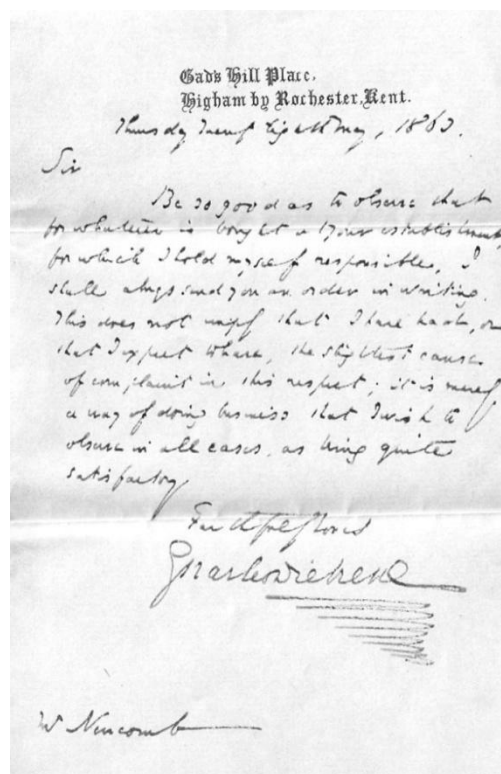 Gads Hill Place.
Higham by Rochester, Kent.
Thursday Twenty Eighth May, 1863.
Sir
Be so good as to observe that
for whatever is bought at your establishment
for which I hold myself responsible, I
shall always send you an order in writing.
This does not imply that I have had, or
that I expect to have, the slightest cause
of complaint in this respect; it is merely
a way of doing business that I wish to
observe in all cases, as being quite
satisfactory
Faithfully Yours
Charles Dickens
Mr Newcomb